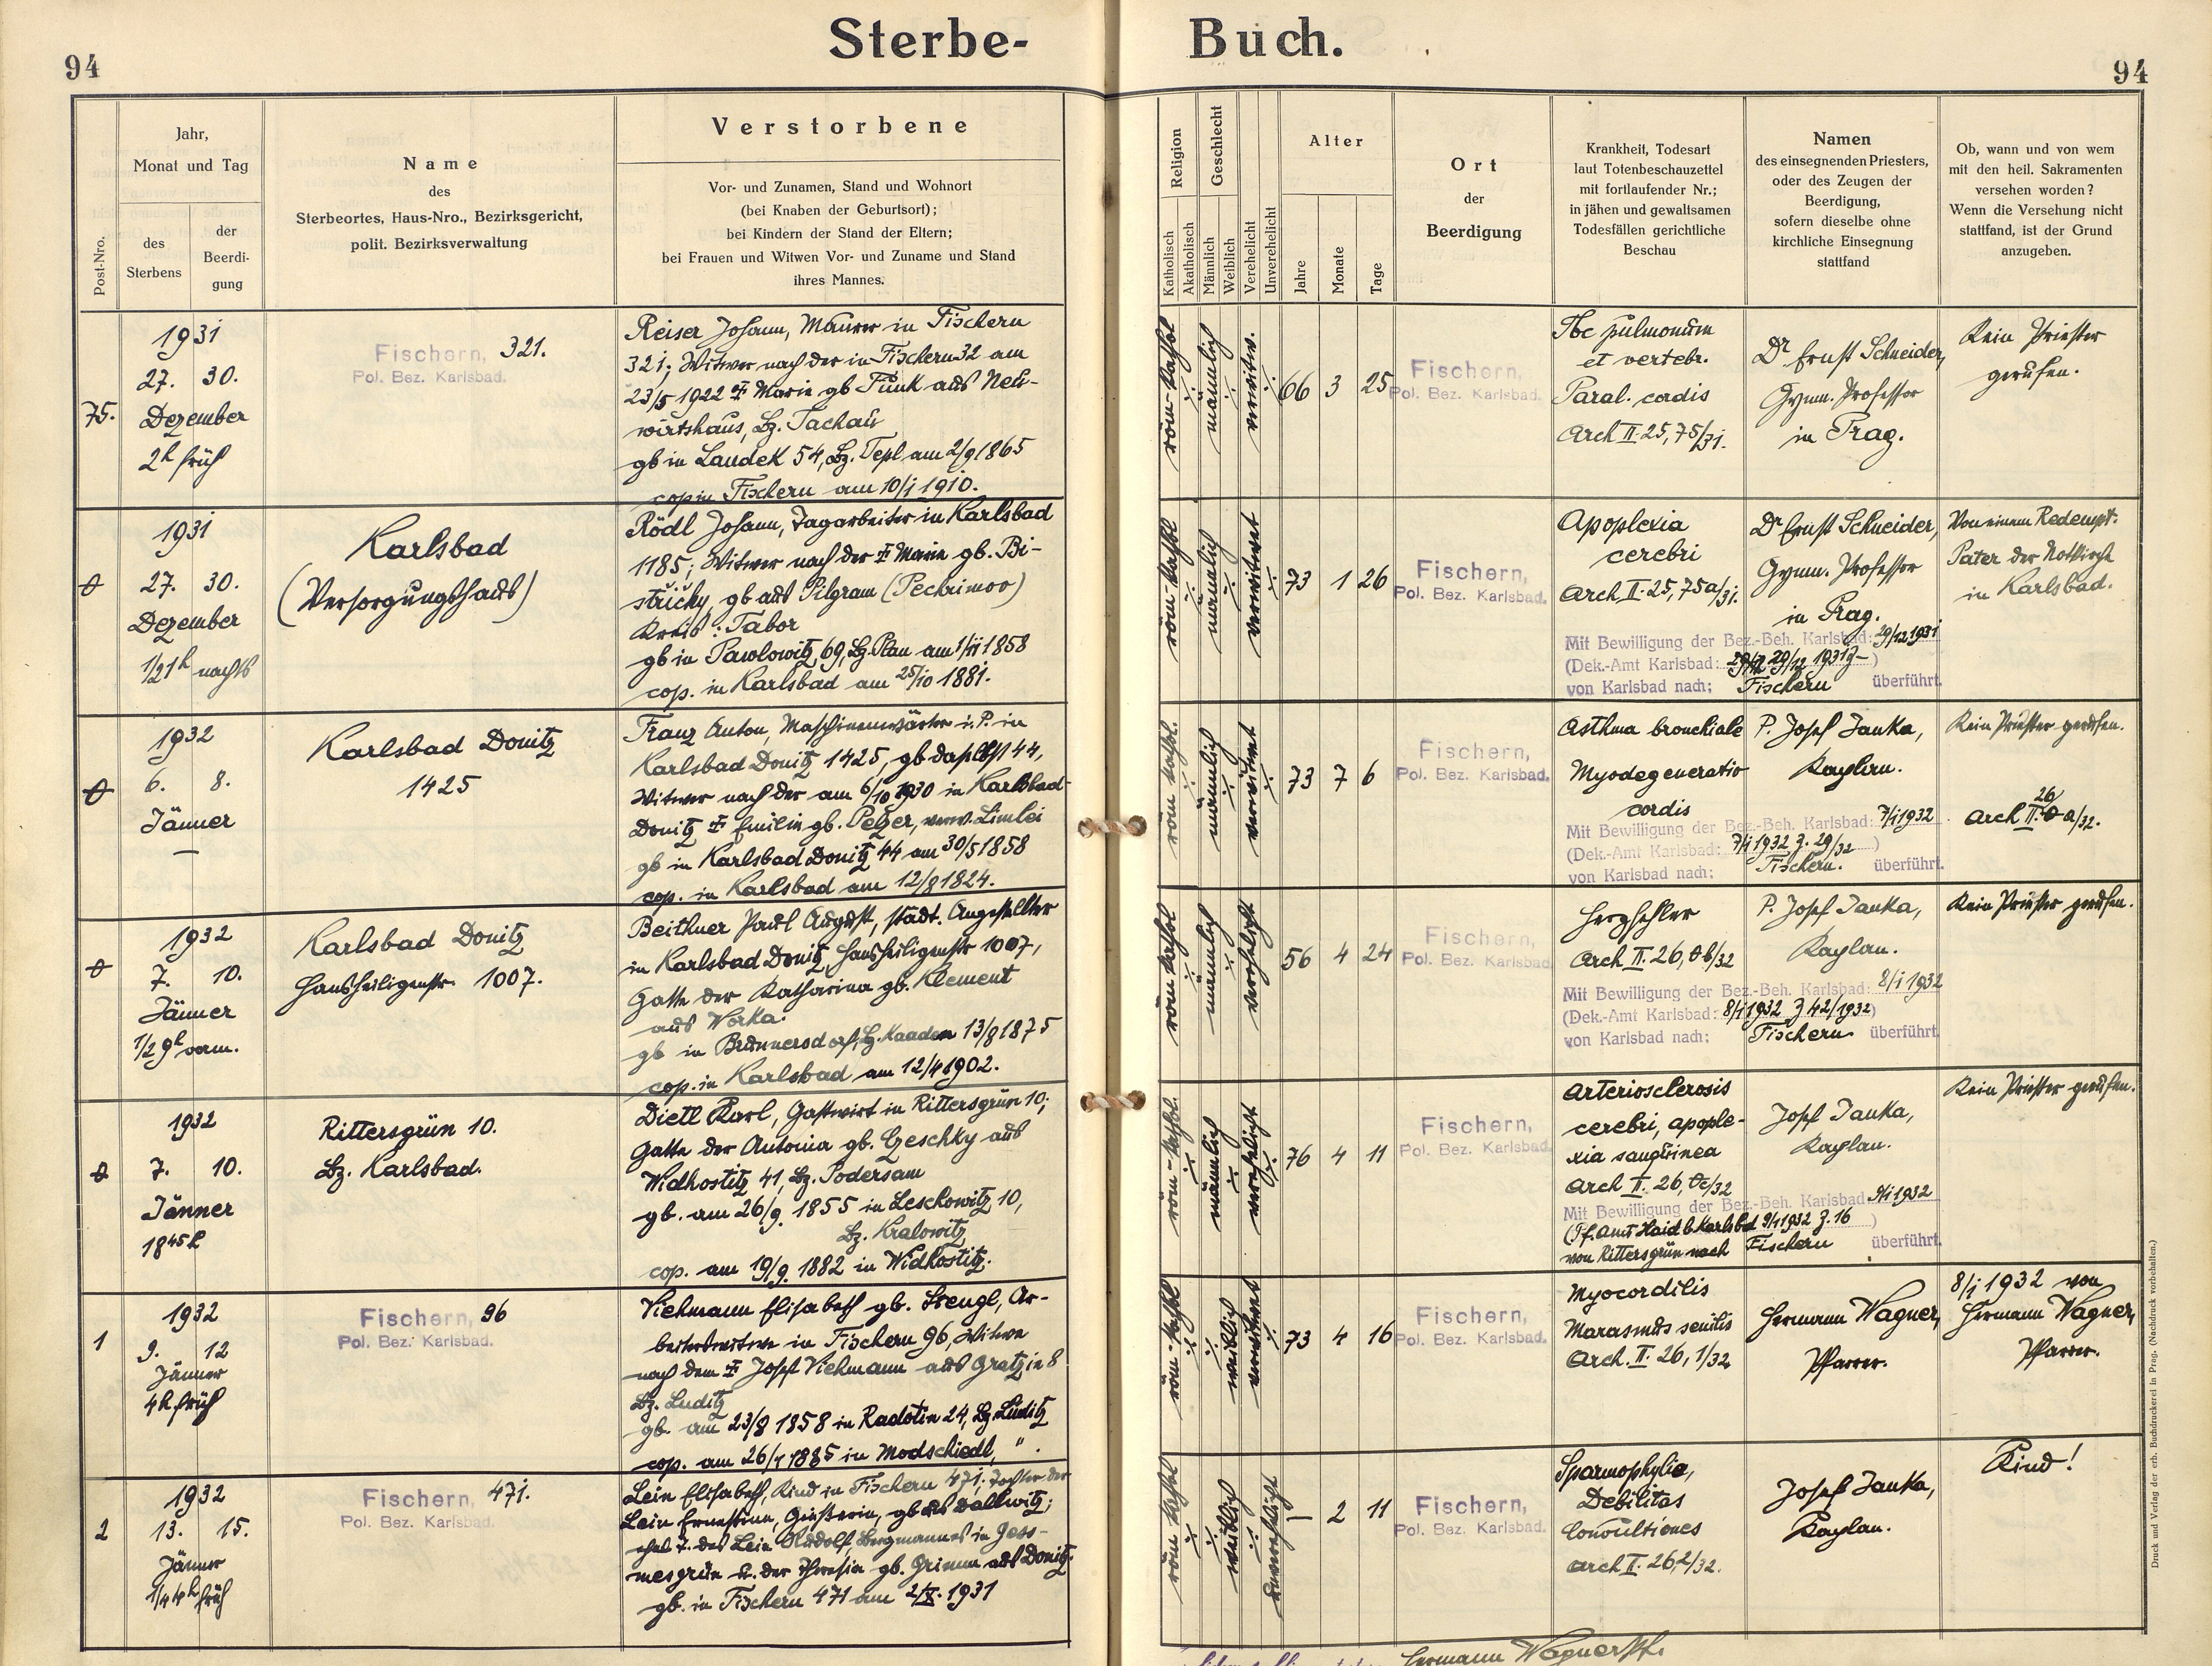 Sterbe- Buch.
94
94
Post-Nro.
Jahr,
Monat und Tag
des
Sterbens
der
Beerdi-
gung
Name
des
Sterbeortes, Haus-Nro., Bezirksgericht,
polit. Bezirksverwaltung
Verstorbene
Vor- und Zunamen, Stand und Wohnort
(bei Knaben der Geburtsort);
bei Kindern der Stand der Eltern;
bei Frauen und Witwen Vor- und Zuname und Stand
ihres Mannes.
Religion
Katholisch
Akatholisch
Geschlecht
Männlich
Weiblich
Verehelicht
Unverehelicht
Alter
Jahre
Monate
Tage
Ort
der
Beerdigung
Krankheit, Todesart
laut Totenbeschauzettel
mit fortlaufender Nr.;
in jähen und gewaltsamen
Todesfällen gerichtliche
Beschau
Namen
des einsegnenden Priesters,
oder des Zeugen der
Beerdigung,
sofern dieselbe ohne
kirchliche Einsegnung
stattfand
Ob, wann und von wem
mit den heil. Sakramenten
versehen worden?
Wenn die Versehung nicht
stattfand, ist der Grund
anzugeben.
75.
1931
27. 30.
Dezember
2h früh
Fischern, 321.
Pol. Bez. Karlsbad.
Reiser Johann, Maurer in Fischern
321; Witwer nach der in Fischern 32 am
23/5 1922 † Marie gb Funk aus Neu-
wirtshaus, Bz. Tachau
gb in Landek 54, Bz. Tepl am 2/9 1865
cop in Fischern am 10/1 1910.
röm-kathol
männlich
verwitw.
66 3 25
Fischern,
Pol. Bez. Karlsbad.
Tbc pulmonum
et vertebr.
Paral. cordis
Arch II. 25, 75/31.
Dr. Ernst Schneider,
Gymn. Professor
in Prag.
Kein Priester
gerufen.
1931
27. 30.
Dezember
1/2 1h nachts
Karlsbad
(Versorgungshaus)
Rödl Johann, Tagarbeiter in Karlsbad
1185; Witwer nach der † Marie gb. Bi-
střicky, gb aus Pilgram (Pechrimov)
Kreis: Tabor
gb in Pawlowitz 69, Bz. Plan am 1/11 1858
cop. in Karlsbad am 25/10 1881.
röm-kathol
männlich
verwitwet
73 1 26
Fischern,
Pol. Bez. Karlsbad.
Apoplexia
cerebri
Arch II. 25, 75a/31.
Dr Ernst Schneider,
Gymn. Professor
in Prag.
Von einem Redempt.
Pater der Notkirche
in Karlsbad.
Mit Bewilligung der Bez.-Beh. Karlsbad: 29/12 1931
(Dek.-Amt Karlsbad: 29/12 1931 )
von Karlsbad nach; Fischern überführt.
1932
6. 8.
Jänner
—
Karlsbad Donitz
1425
Franz Anton, Maschinenwärter i. P. in
Karlsbad Donitz 1425, gb daselbst 44,
Witwer nach der am 6/10 1930 in Karlsbad-
Donitz † Emilie gb. Pelzer, verw. Limlei
gb in Karlsbad Donitz 44 am 30/5 1858
cop. in Karlsbad am 12/8 1824.
röm kathol.
männlich
verwitwet
73 7 6
Fischern,
Pol. Bez. Karlsbad.
Asthma bronchiale
Myodegeneratio
cordis
P. Josef Janka,
Kaplan.
Kein Priester gerufen.
Arch II. 26 a/32.
Mit Bewilligung der Bez.-Beh. Karlsbad: 7/1 1932
(Dek.-Amt Karlsbad: 7/1 1932 Z. 29/32 )
von Karlsbad nach; Fischern. überführt.
1932
7. 10.
Jänner
1/2 9h vorm.
Karlsbad Donitz
Hansheiligenstr. 1007.
Beithner Paul August, städt. Angestellter
in Karlsbad Donitz, Hansheiligenstr 1007,
Gatte der Katharina gb. Klement
aus Worka.
gb in Brunnersdorf, Bz. Kaaden 13/8 1875
cop. in Karlsbad am 12/4 1902.
röm kathol
männlich
verehelicht
56 4 24
Fischern,
Pol. Bez. Karlsbad.
Herzfehler
Arch II. 26, 0b/32
P. Josef Janka,
Kaplan.
Kein Priester gerufen.
Mit Bewilligung der Bez.-Beh. Karlsbad: 8/1 1932
(Dek.-Amt Karlsbad: 8/1 1932 Z 42/1932)
von Karlsbad nach; Fischern überführt.
1932
7. 10.
Jänner
18 45 h
Rittersgrün 10.
Bz. Karlsbad.
Dietl Karl, Gastwirt in Rittersgrün 10;
Gatte der Antonia gb. Czeschky aus
Widhostitz 41, Bz. Podersam
gb. am 26/9. 1855 in Leschowitz 10,
Bz. Kralowitz
cop. am 19/9. 1882 in Widhostitz.
röm-kathol.
männlich
verehelicht
76 4 11
Fischern,
Pol. Bez. Karlsbad.
Arteriosclerosis
cerebri, apople-
xia sanguinea
Arch II. 26, 0c/32
Josef Janka,
Kaplan.
Kein Priester gerufen.
Mit Bewilligung der Bez.-Beh. Karlsbad: 9/1 1932
(Pf. Amt Haid b Karlsbad 9/1 1932 Z. 16 )
von Rittersgrün nach Fischern überführt.
1
1932
9. 12
Jänner
4h früh
Fischern, 96
Pol. Bez. Karlsbad.
Viehmann Elisabeth gb. Stengl, Ar-
beiterswitwe in Fischern 96, Witwe
nach dem † Josef Viehmann aus Gratzin 8
Bz. Luditz
gb. am 23/8 1858 in Radotin 24, Bz Luditz
cop. am 26/1 1885 in Modschiedl, " .
röm-kathol
weiblich
verwitwet
73 4 16
Fischern,
Pol. Bez. Karlsbad.
Myocorditis
Marasmus senilis
Arch. II. 26, 1/32
Hermann Wagner,
Pfarrer.
8/1 1932 von
Hermann Wagner,
Pfarrer.
2
1932
13. 15.
Jänner
1/4 4h früh
Fischern, 471.
Pol. Bez. Karlsbad.
Lein Elisabeth, Kind in Fischern 471; Tochter der
Lein Ernestine, Gießerin, gb aus Dallwitz;
ehel T. des Lein Rudolf, Bergmannes in Joss-
mesgrün u. der Theresia gb. Grimm aus Donitz.
gb. in Fischern 471 am 2/X. 1931
röm kathol
weiblich
unverehelicht
— 2 11
Fischern,
Pol. Bez. Karlsbad.
Sparmophylie,
Debilitas
Convultiones
Arch II. 26, 2/32.
Josef Janka,
Kaplan.
Kind!
Hermann Wagner Pf.
Druck und Verlag der erb. Buchdruckerei in Prag. (Nachdruck vorbehalten.)